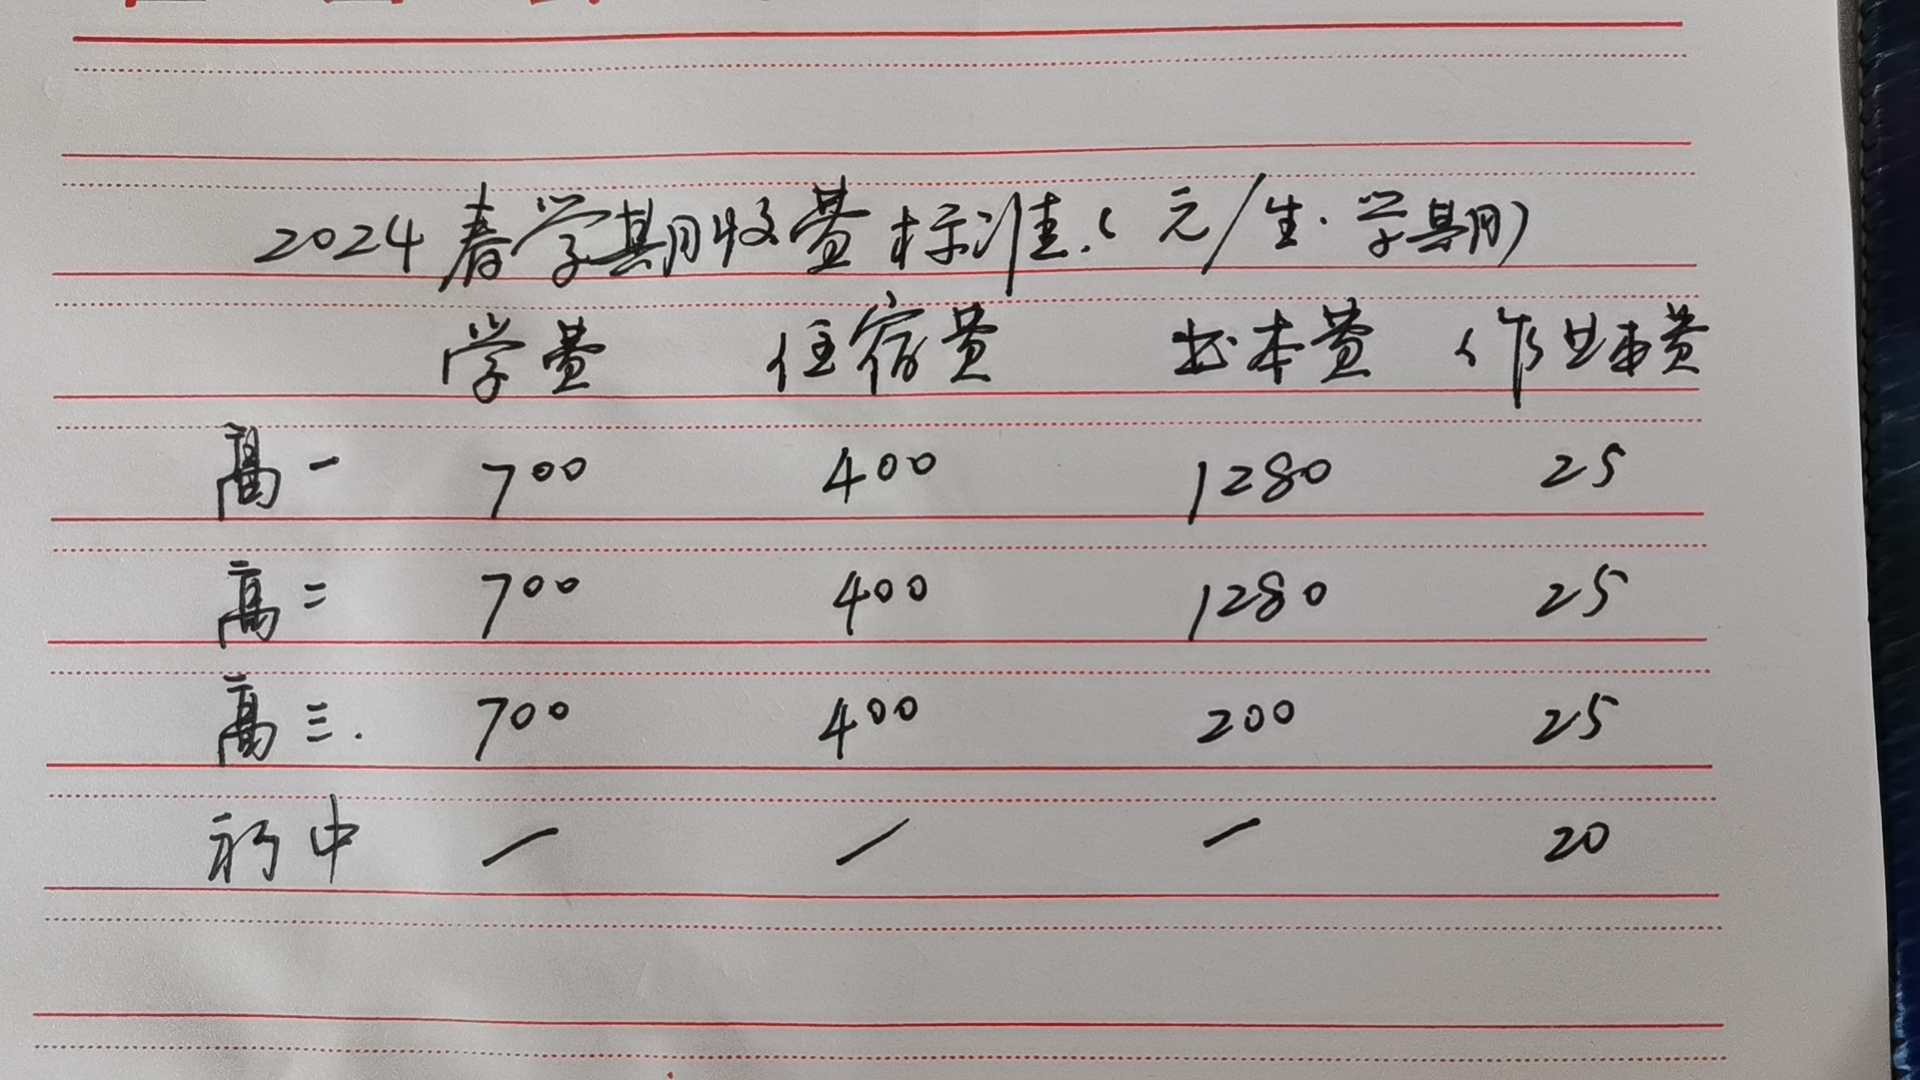 2024春学期收费标准.(元/生·学期)
学费 住宿费 书本费 作业本费
高一 700 400 1280 25
高二 700 400 1280 25
高三. 700 400 200 25
初中 — — — 20